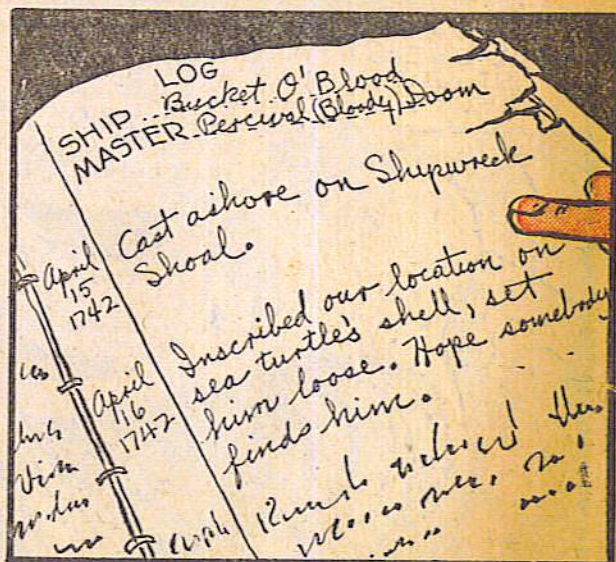 LOG
SHIP Bucket O' Blood
MASTER Percival (Bloody) Doom
April
15
1742
Cast ashore on Shipwreck
Shoal.
April
16
1742
Inscribed our location on
sea turtle's shell, set
him loose. Hope somebody
finds him.